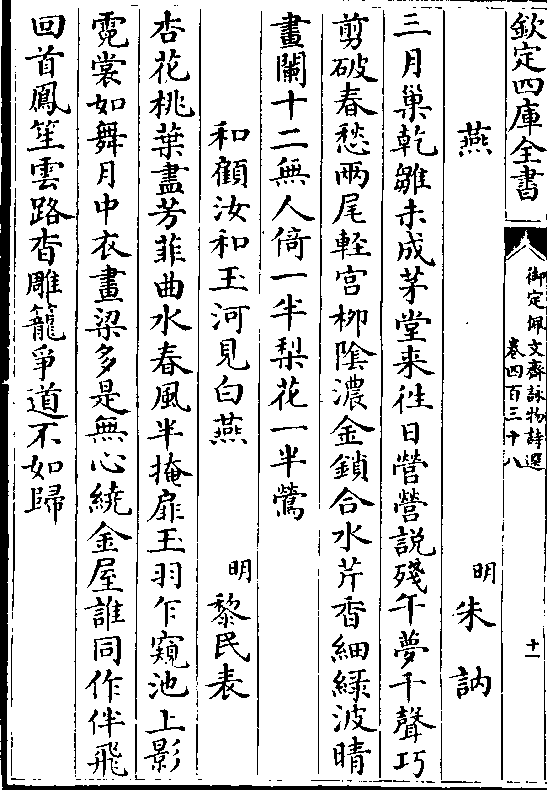 欽定四庫全書
御定佩文齋詠物詩選
卷四百三十八
十一
燕
明
朱訥
三月巢乾雛未成茅堂来往日營營説殘午夢千聲巧
剪破春愁兩尾輕宫栁隂濃金鎖合水芹香細緑波晴
畫闌十二無人倚一半梨花一半鶯
和顧汝和玉河見白燕
明
黎民表
杏花桃葉盡芳菲曲水春風半掩扉玉羽乍窺池上影
霓裳如舞月中衣畫梁多是無心繞金屋誰同作伴飛
回首鳳笙雲路杳雕籠爭道不如歸